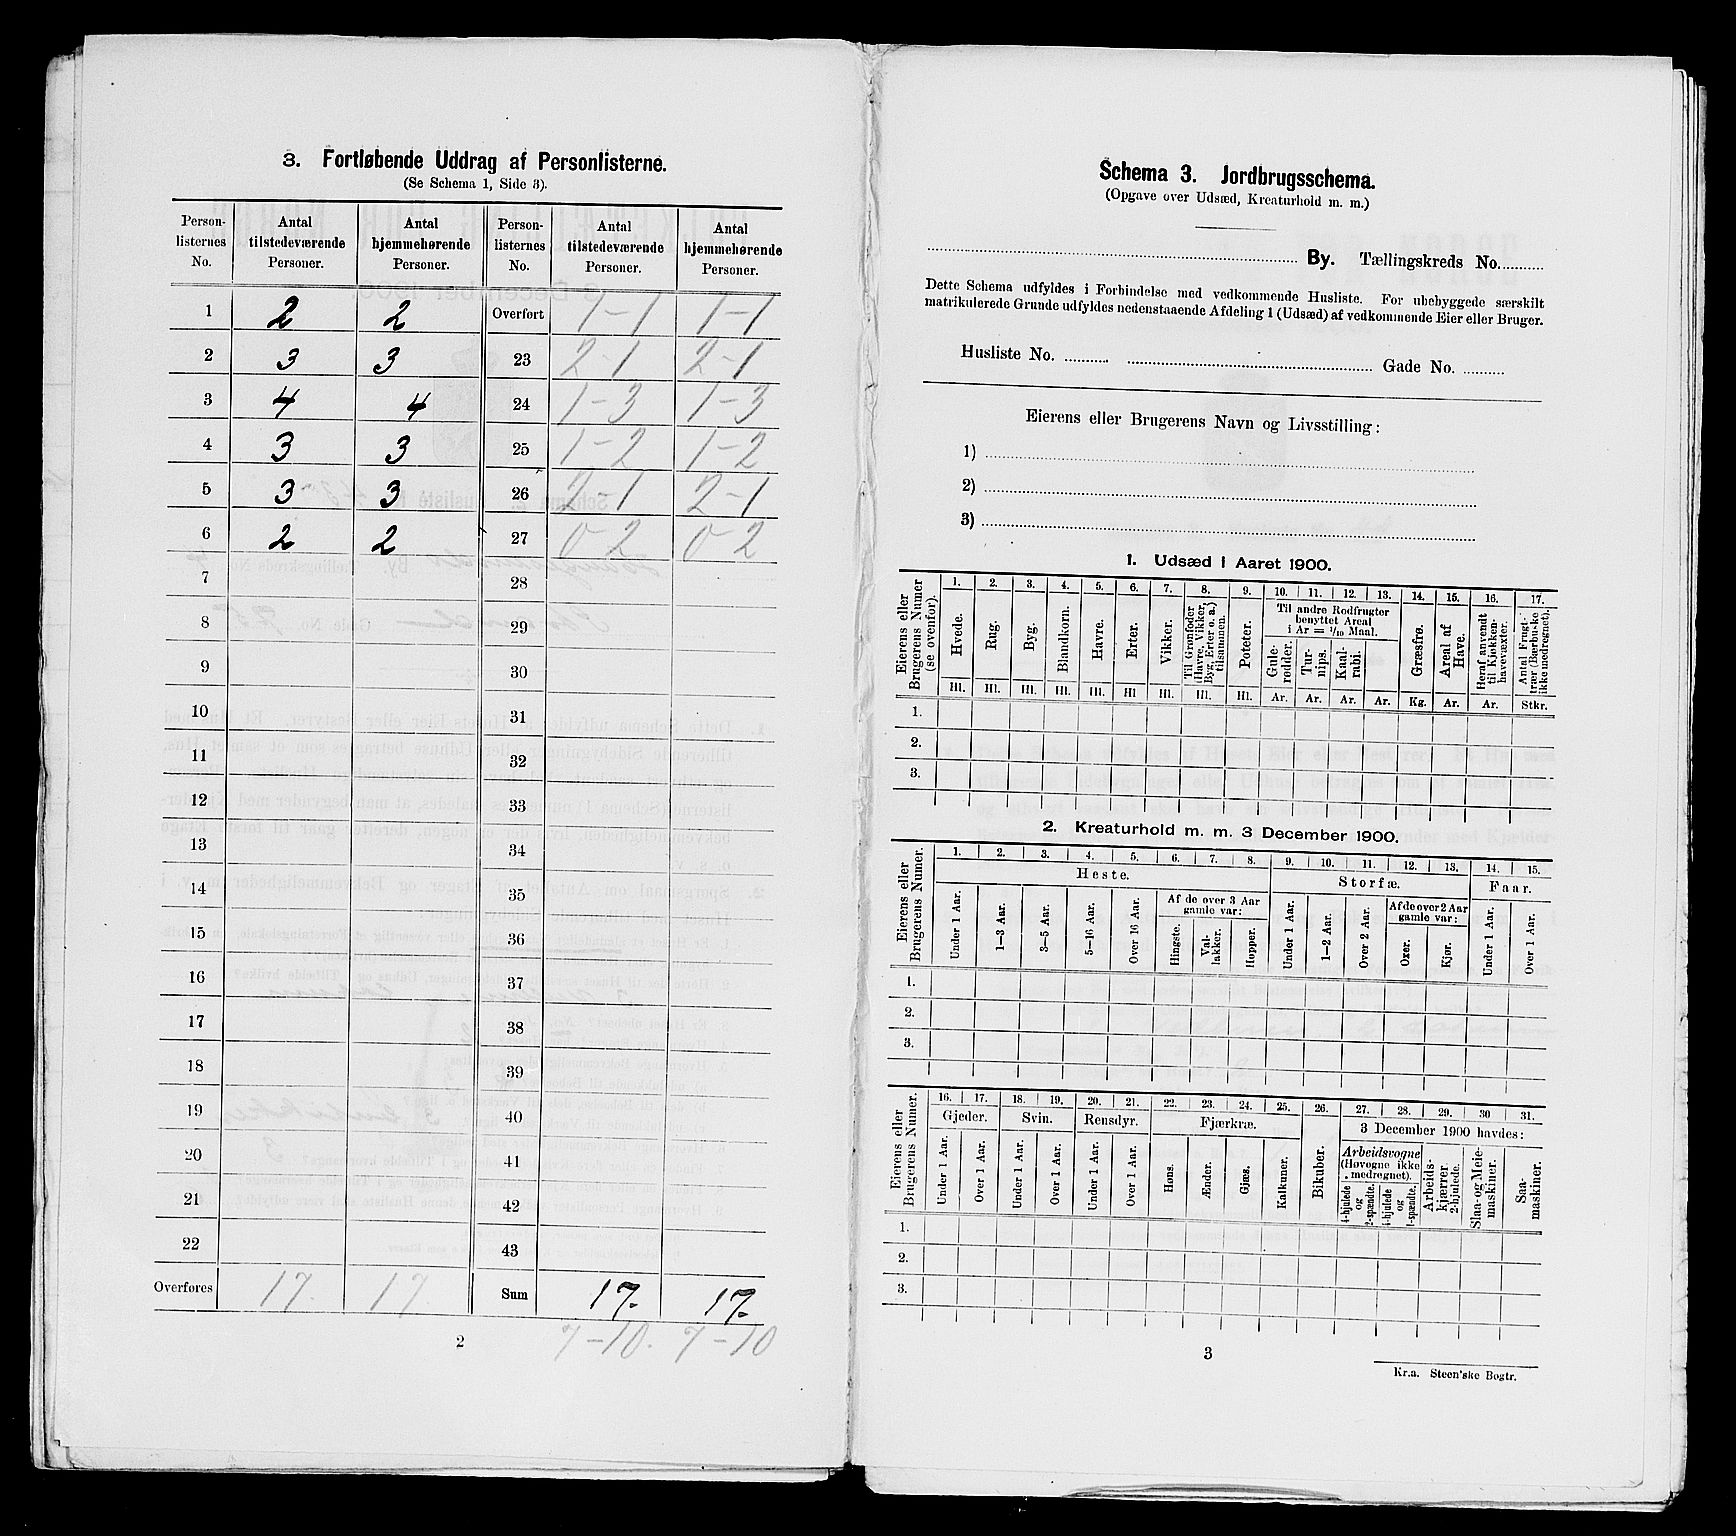 3. Fortløbende Uddrag af Personlisterne.
(Se Schema 1, Side 3).
Person-listernes No. | Antal tilstedeværende Personer. | Antal hjemmehørende Personer. | Person-listernes No. | Antal tilstedeværende Personer. | Antal hjemmehørende Personer.
1 2 2 Overført 1-1 1-1
2 3 3 23 2-1 2-1
3 4 4 24 1-3 1-3
4 3 3 25 1-2 1-2
5 3 3 26 2-1 2-1
6 2 2 27 0 2 0 2
7 28
8 29
9 30
10 31
11 32
12 33
13 34
14 35
15 36
16 37
17 38
18 39
19 40
20 41
21 42
22 43
Overføres 17. 17 Sum 17. 17.
7-10. 7-10
2
Schema 3. Jordbrugsschema.
(Opgave over Udsæd, Kreaturhold m. m.)
By. Tællingskreds No.
Dette Schema udfyldes i Forbindelse med vedkommende Husliste. For ubebyggede særskilt
matrikulerede Grunde udfyldes nedenstaaende Afdeling 1 (Udsæd) af vedkommende Eier eller Bruger.
Husliste No. Gade No.
Eierens eller Brugerens Navn og Livsstilling:
1)
2)
3)
1. Udsæd i Aaret 1900.
Eierens eller Brugerens Numer (se ovenfor).
1. 2. 3. 4. 5. 6. 7. 8. 9. 10. 11. 12. 13. 14. 15. 16. 17.
Hvede. Rug. Byg. Blandkorn. Havre. Erter. Vikker. Til Grønfoder (Havre, Vikker, Byg, Erter o. a.) tilsammen. Poteter.
Til andre Rodfrugter benyttet Areal i Ar = 1/10 Maal.
Gule-rødder. Tur-nips. Kaal-rabi. Græsfrø. Areal af Have. Heraf anvendt til Kjøkken-havevæxter. Antal Frugt-trær (Bærbuske ikke medregnet).
Hl. Hl. Hl. Hl. Hl. Hl Hl. Hl. Hl. Ar. Ar. Ar. Ar. Kg. Ar. Ar. Stkr.
1.
2.
3.
2. Kreaturhold m. m. 3 December 1900.
Eierens eller Brugerens Numer.
1. 2. 3. 4. 5. 6. 7. 8. 9. 10. 11. 12. 13. 14. 15.
Heste. Storfæ. Faar.
Af de over 3 Aar gamle var: Af de over 2 Aar gamle var:
Under 1 Aar. 1—3 Aar. 3—5 Aar. 5—16 Aar. Over 16 Aar. Hingste. Val-lakker. Hopper. Under 1 Aar. 1—2 Aar. Over 2 Aar. Oxer. Kjør. Under 1 Aar. Over 1 Aar.
1.
2.
3.
Eierens eller Brugerens Numer.
16. 17. 18. 19. 20. 21. 22. 23. 24. 25. 26. 27. 28. 29. 30 31.
Gjeder. Svin. Rensdyr. Fjærkræ. Bikuber. 3 December 1900 havdes:
Under 1 Aar. Over 1 Aar. Under 1 Aar. Over 1 Aar. Under 1 Aar. Over 1 Aar. Høns. Ænder. Gjæs. Kalkuner.
Arbeidsvogne (Høvogne ikke medregnet).
4-hjulede og 2-spændte. 4-hjulede og 1-spændte. Arbeids-kjærrer 2-hjulede. Slaa- og Meie-maskiner. Saa-maskiner.
1.
2.
3.
3
Kr.a. Steen'ske Bogtr.